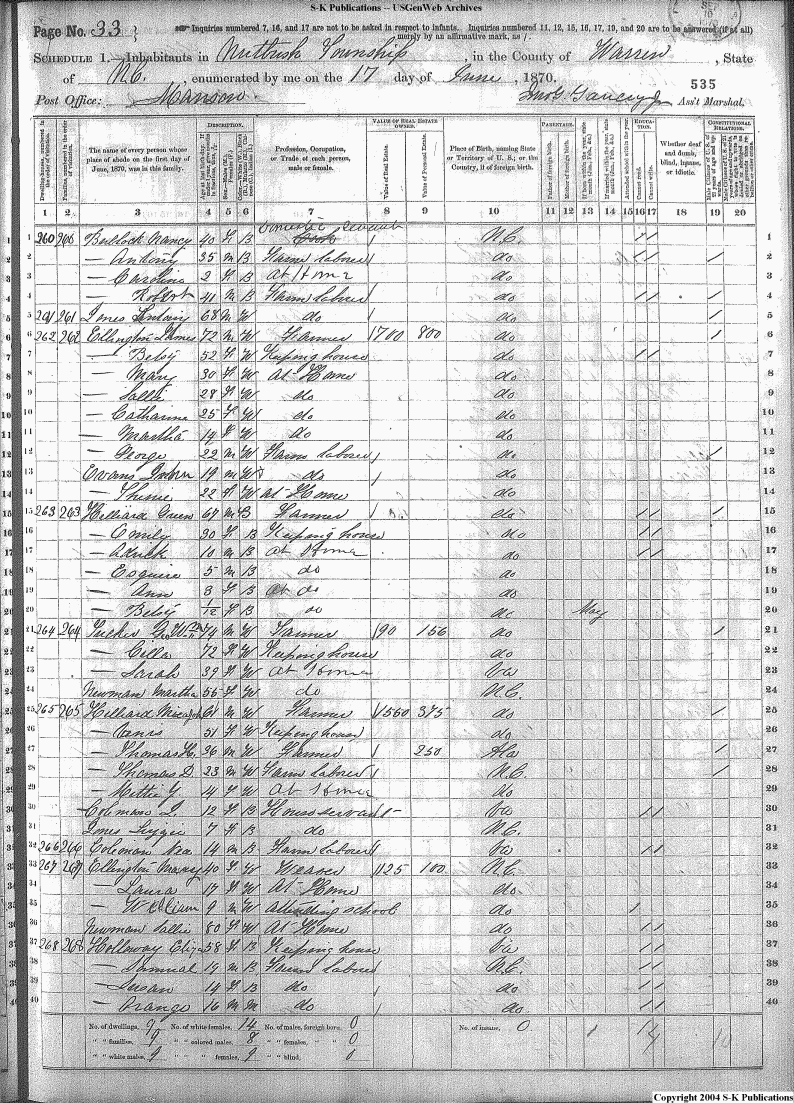 S-K Publications -- USGenWeb Archives
Page No. 33
Inquiries numbered 7, 16, and 17 are not to be asked in respect to infants. Inquiries numbered 11, 12, 15, 16, 17, 19, and 20 are to be answered (if at all) merely by an affirmative mark, as /.
SCHEDULE 1.—Inhabitants in Nutbush Township, in the County of Warren, State
of N.C., enumerated by me on the 17 day of June, 1870.
535
Post Office: Manson. Ass't Marshal.
DESCRIPTION. VALUE OF REAL ESTATE OWNED. PARENTAGE. EDUCATION. CONSTITUTIONAL RELATIONS.
The name of every person whose place of abode on the first day of June, 1870, was in this family.
Profession, Occupation, or Trade of each person, male or female.
Value of Real Estate. Value of Personal Estate.
Place of Birth, naming State or Territory of U. S.; or the Country, if of foreign birth.
Father of foreign birth. Mother of foreign birth.
Attended school within the year. Cannot read. Cannot write.
Whether deaf and dumb, blind, insane, or idiotic.
1 2 3 4 5 6 7 8 9 10 11 12 13 14 15 16 17 18 19 20
1 260 260 Bullock Nancy 40 F B Domestic Servant N.C. / / 1
2 — Antony 35 M B Farm laborer do / / / 2
3 — Caroline 2 F B At Home do 3
4 — Robert 41 M B Farm laborer do / / / 4
5 261 261 Jones 68 M W do do / 5
6 262 262 Ellington James 72 M W Farmer 1700 800 do / 6
7 — Betsy 52 F W Keeping house do / / 7
8 — Mary 30 F W At Home do 8
9 — Sallie 28 F W do do 9
10 — Catharine 25 F W do do 10
11 — Martha 19 F W do do 11
12 — George 22 M W Farm laborer do / 12
13 Evans 19 M W do do 13
14 — 22 F W At Home do 14
15 263 263 Hilliard Green 67 M B Farmer do / / / 15
16 — Emily 30 F B Keeping house do / / 16
17 — 10 M B At Home do / / 17
18 — Esquire 5 M B do do 18
19 — Ann 3 F B At do do 19
20 — Betsy 1/12 F B do do May 20
21 264 264 Tucker Geo W 74 M W Farmer 190 156 do / 21
22 — Cilla 72 F W Keeping house do 22
23 — Sarah 39 F W At Home Va 23
24 Newman Martha 55 F W do N.C. 24
25 265 265 Hilliard Micajah 61 M W Farmer 1560 375 do / 25
26 — 51 F W Keeping house do 26
27 — Thomas H. 36 M W Farmer 250 Ala / 27
28 — Thomas D 23 M W Farm laborer N.C. / 28
29 — Mittie Y 14 F W At Home do 29
30 Coleman L. 12 F B House servant Va / / 30
31 Jones 7 F B do N.C. 31
32 266 266 Coleman 14 M B Farm laborer Va / / 32
33 267 267 Ellington Mary 40 F W Weaver 125 100 N.C. 33
34 — Laura 17 F W At Home do 34
35 — William 9 M W Attending school do / 35
36 Newman Sallie 80 F W At Home do / / 36
37 268 268 Holloway Eliza 58 F B Keeping house Va / / 37
38 — Samuel 19 M B Farm laborer N.C. / / 38
39 — Susan 14 F B do do / / 39
40 — Orange 16 M M do do / / 40
No. of dwellings, 9 No. of white females, 14 No. of males, foreign born, 0 No. of insane, 0
" " families, 9 " " colored males, 8 " " females, " " 0
" " white males, 9 " " " females, 9 " " blind, 0
Copyright 2004 S-K Publications